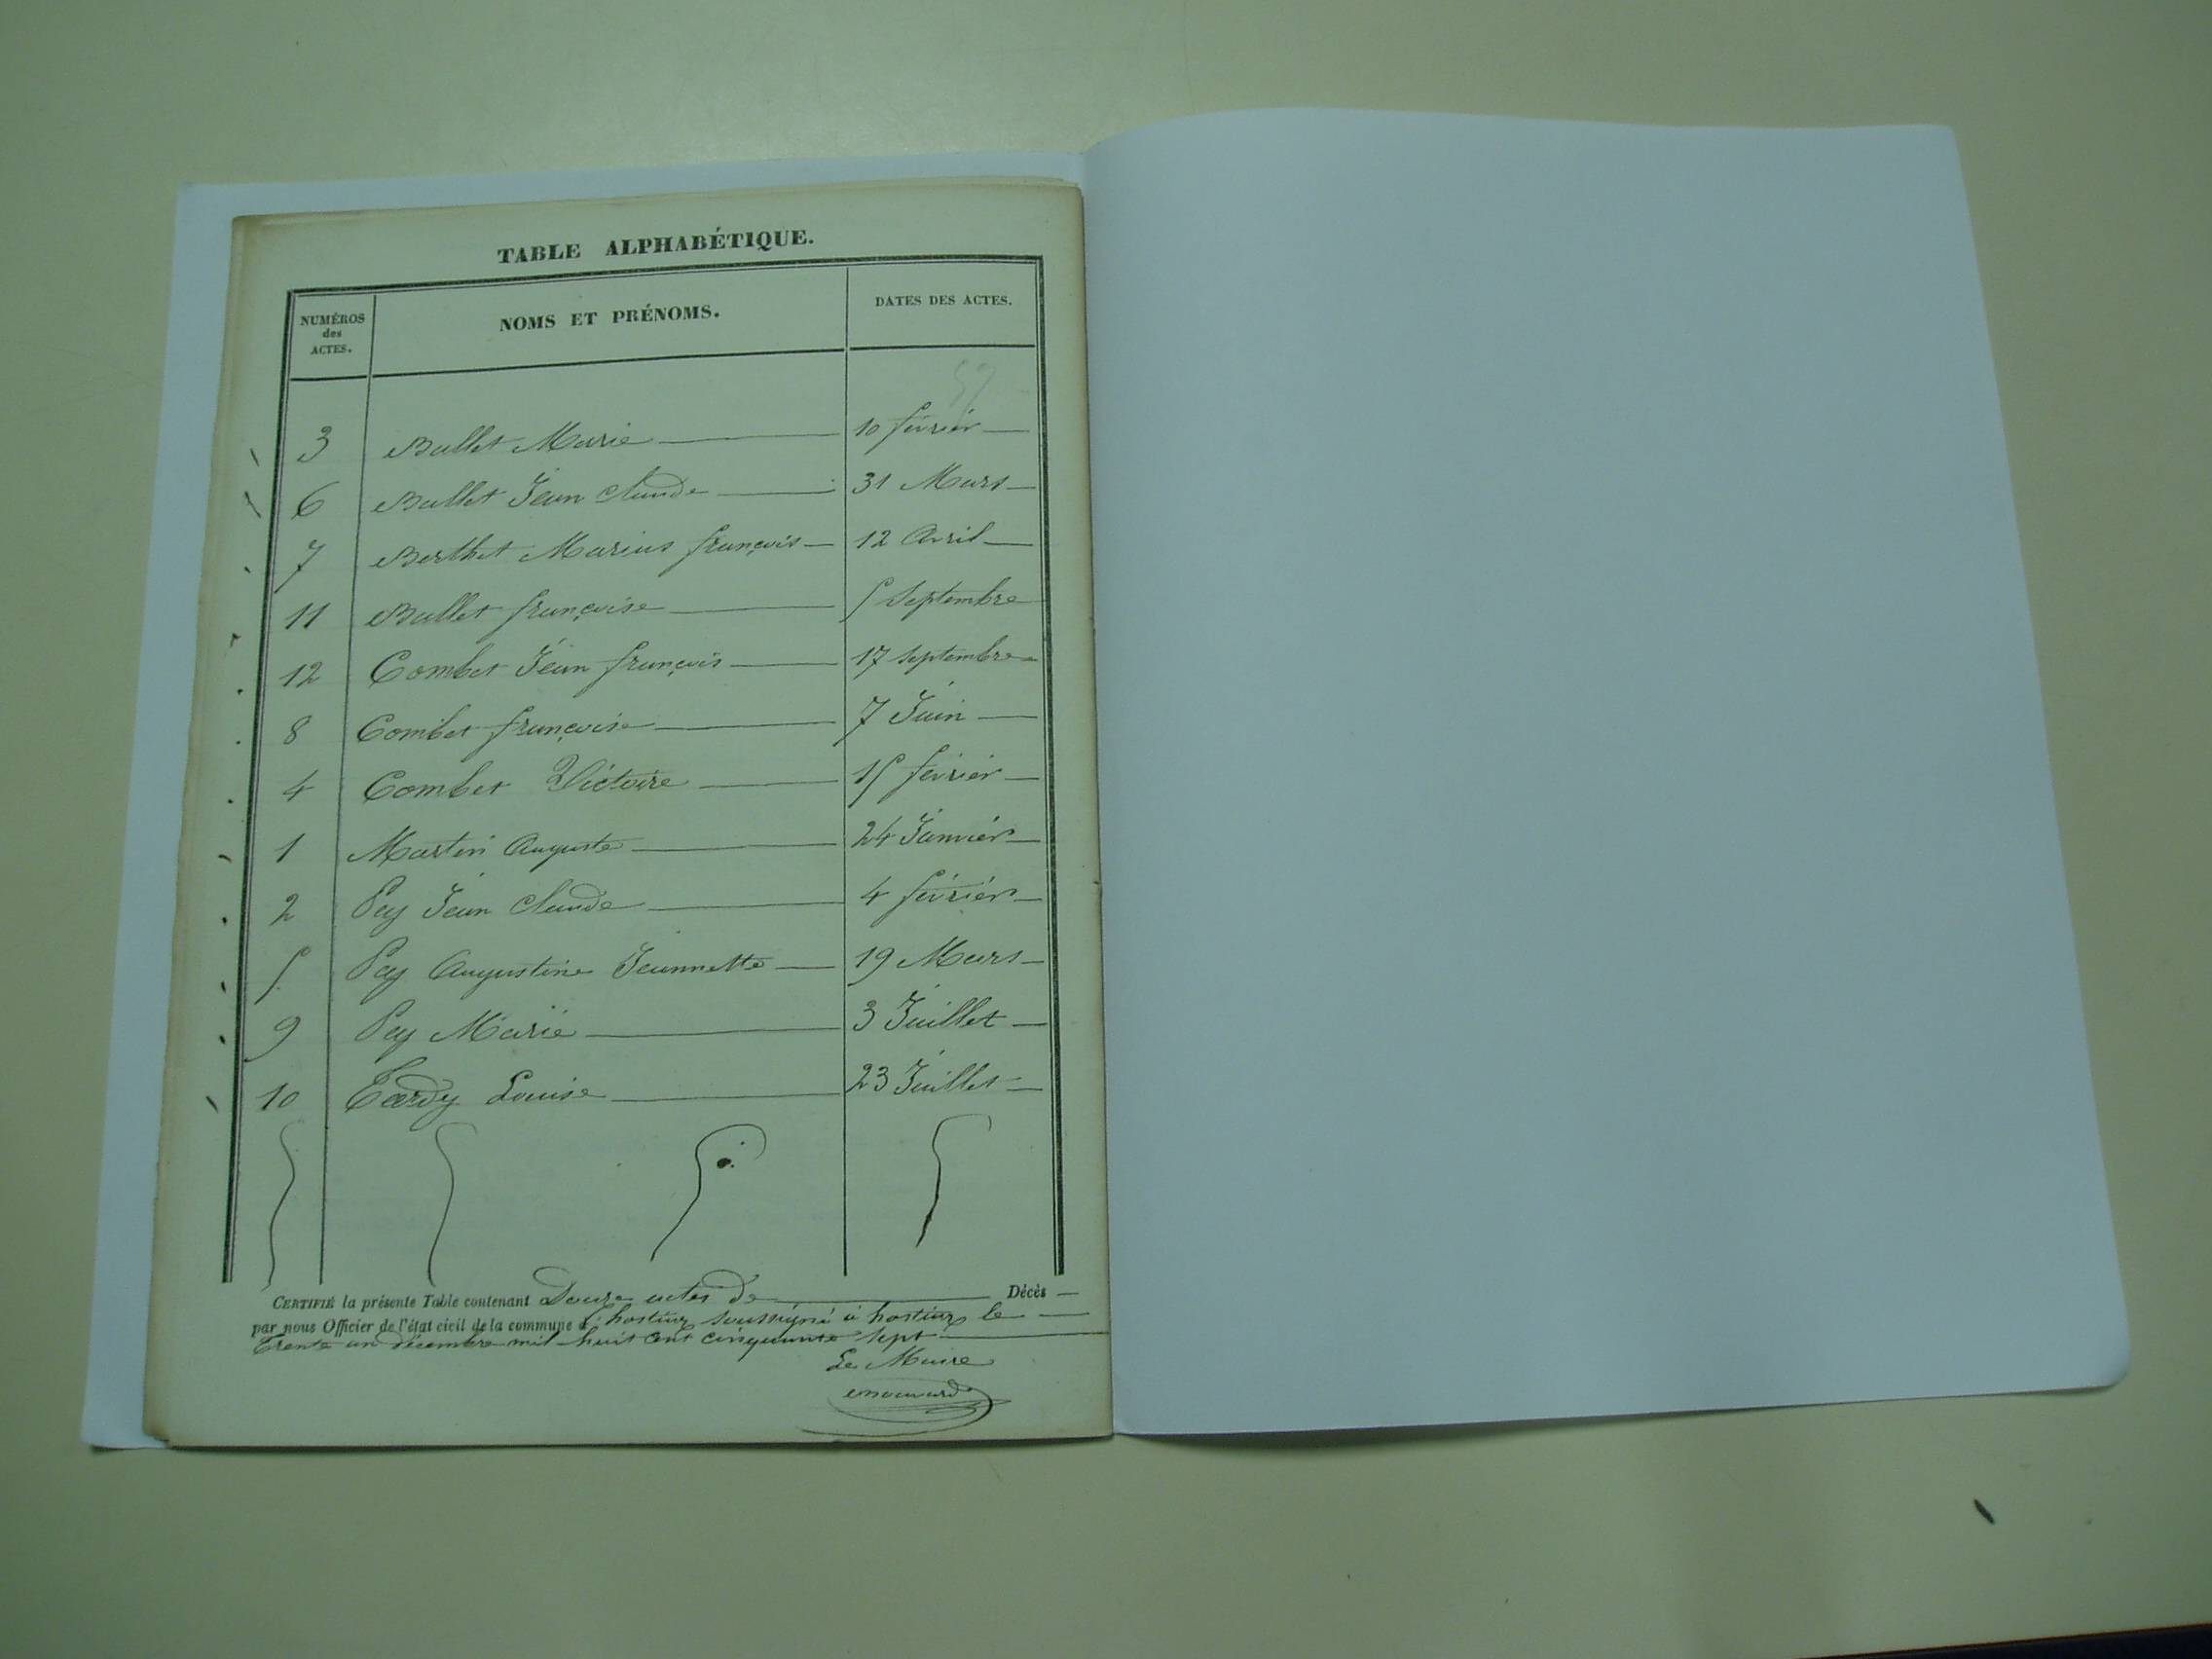 TABLE ALPHABÉTIQUE.
NUMÉROS des ACTES. NOMS ET PRÉNOMS. DATES DES ACTES.
57
3 Ballet Marie 10 février
6 Ballet Jean Claude 31 Mars
7 Berthet Marius françois 12 Avril
11 Ballet françoise 5 Septembre
12 Combet Jean françois 17 Septembre
8 Combet françoise 7 Juin
4 Combet Victoire 15 février
1 Martin Auguste 24 Janvier
2 Pey Jean Claude 4 février
5 Pey Augustine Jeannette 19 Mars
9 Pey Marie 3 Juillet
10 Tardy Louise 23 Juillet
CERTIFIÉ la présente Table contenant Douze actes de Décès
par nous Officier de l'état civil de la commune d'hostiaz soussigné à hostiaz le
Trente un décembre mil huit cent cinquante sept
Le Maire